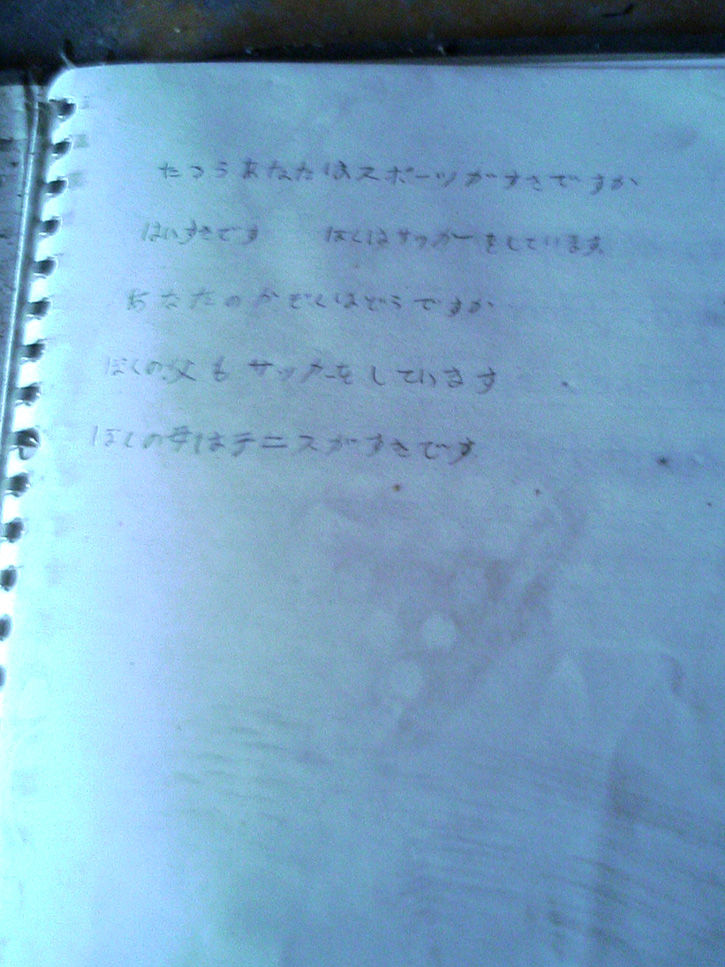 たつろあなたはスポーツがすきですか
はいすきです ぼくはサッカーをしています
あなたのかぞくはどうですか
ぼくの父も サッカーをしています
ぼくの母はテニスがすきです